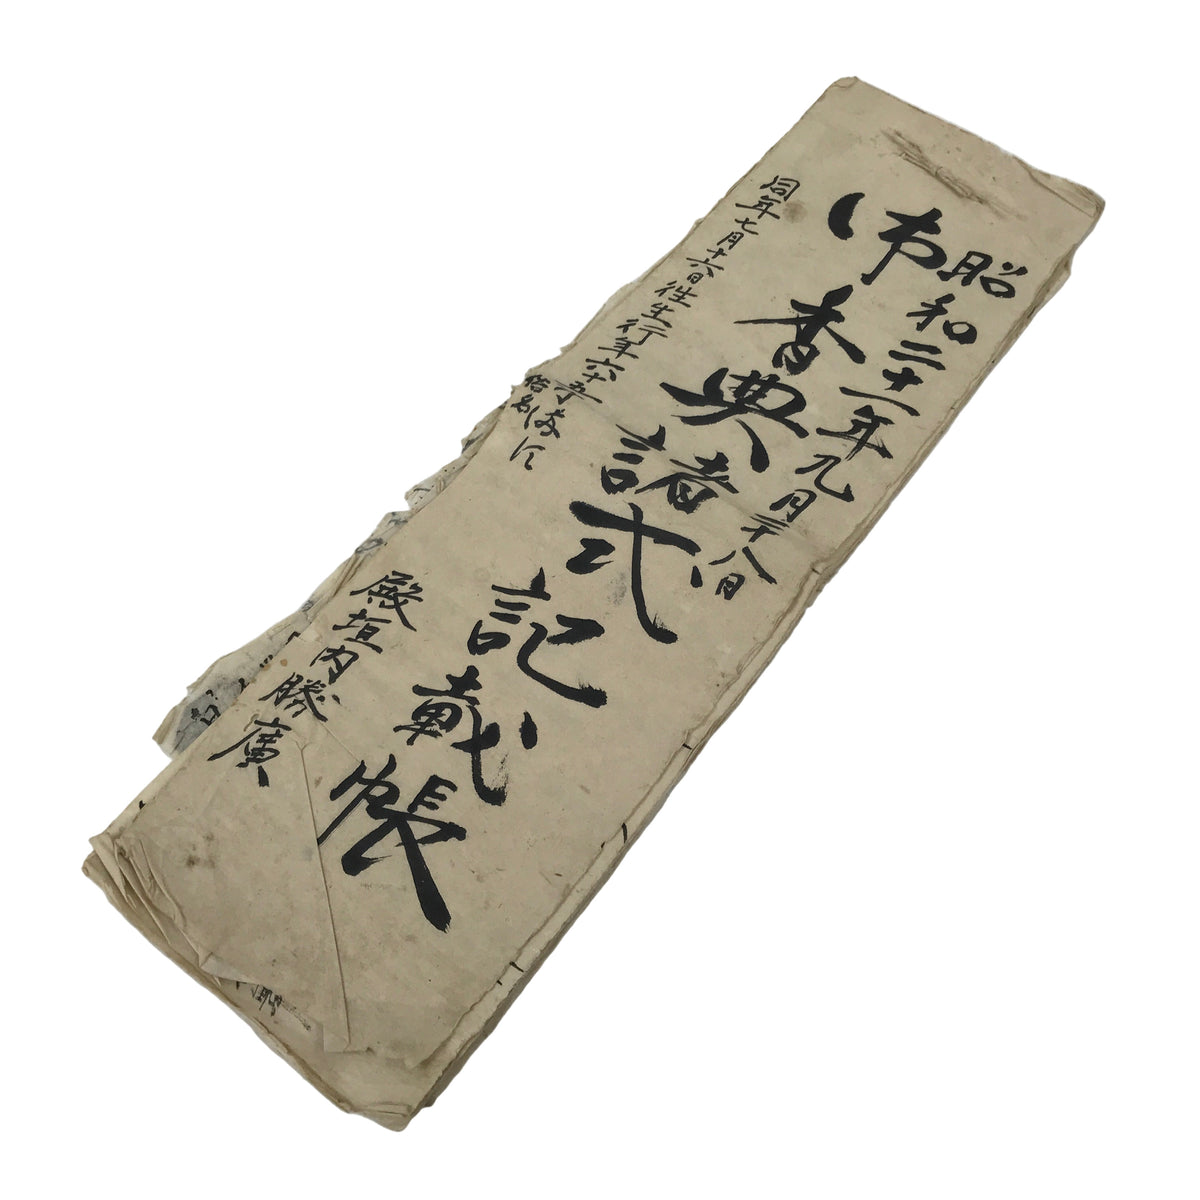 昭和二十一年九月二十八日
御香典諸式記載帳
同年七月十六日往生行年六十五才
俗名
殿垣内勝廣